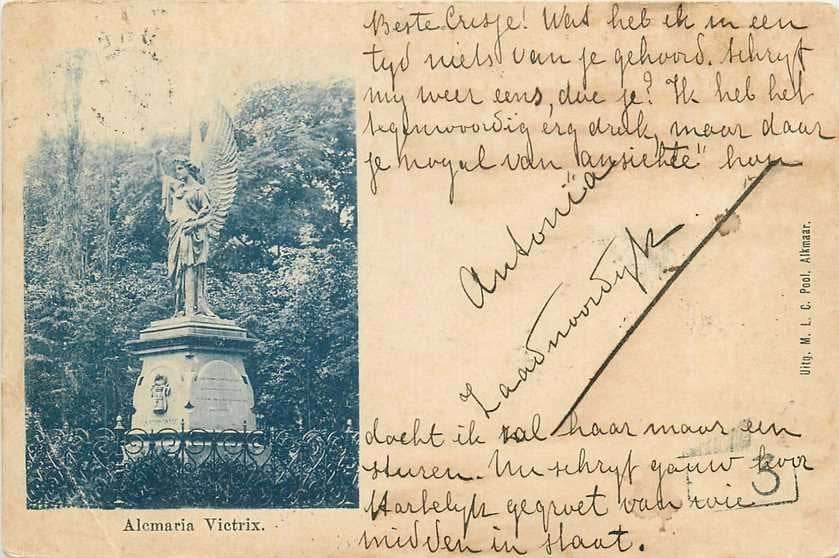 Beste Crisje! Wat heb ik in een
tyd niets van je gehoord. schryf
my weer eens, doe je? Ik heb het
tegenwoordig erg druk, maar daar
je nogal van "ansichte" hou
Antonia
Zaadnoordyk
docht ik zal haar maar een
sturen. Nu schryf gauw hoor
Hartelyk gegroet van wie
midden in staat.
3
Alcmaria Victrix.
Uitg. M. L. C. Pool, Alkmaar.